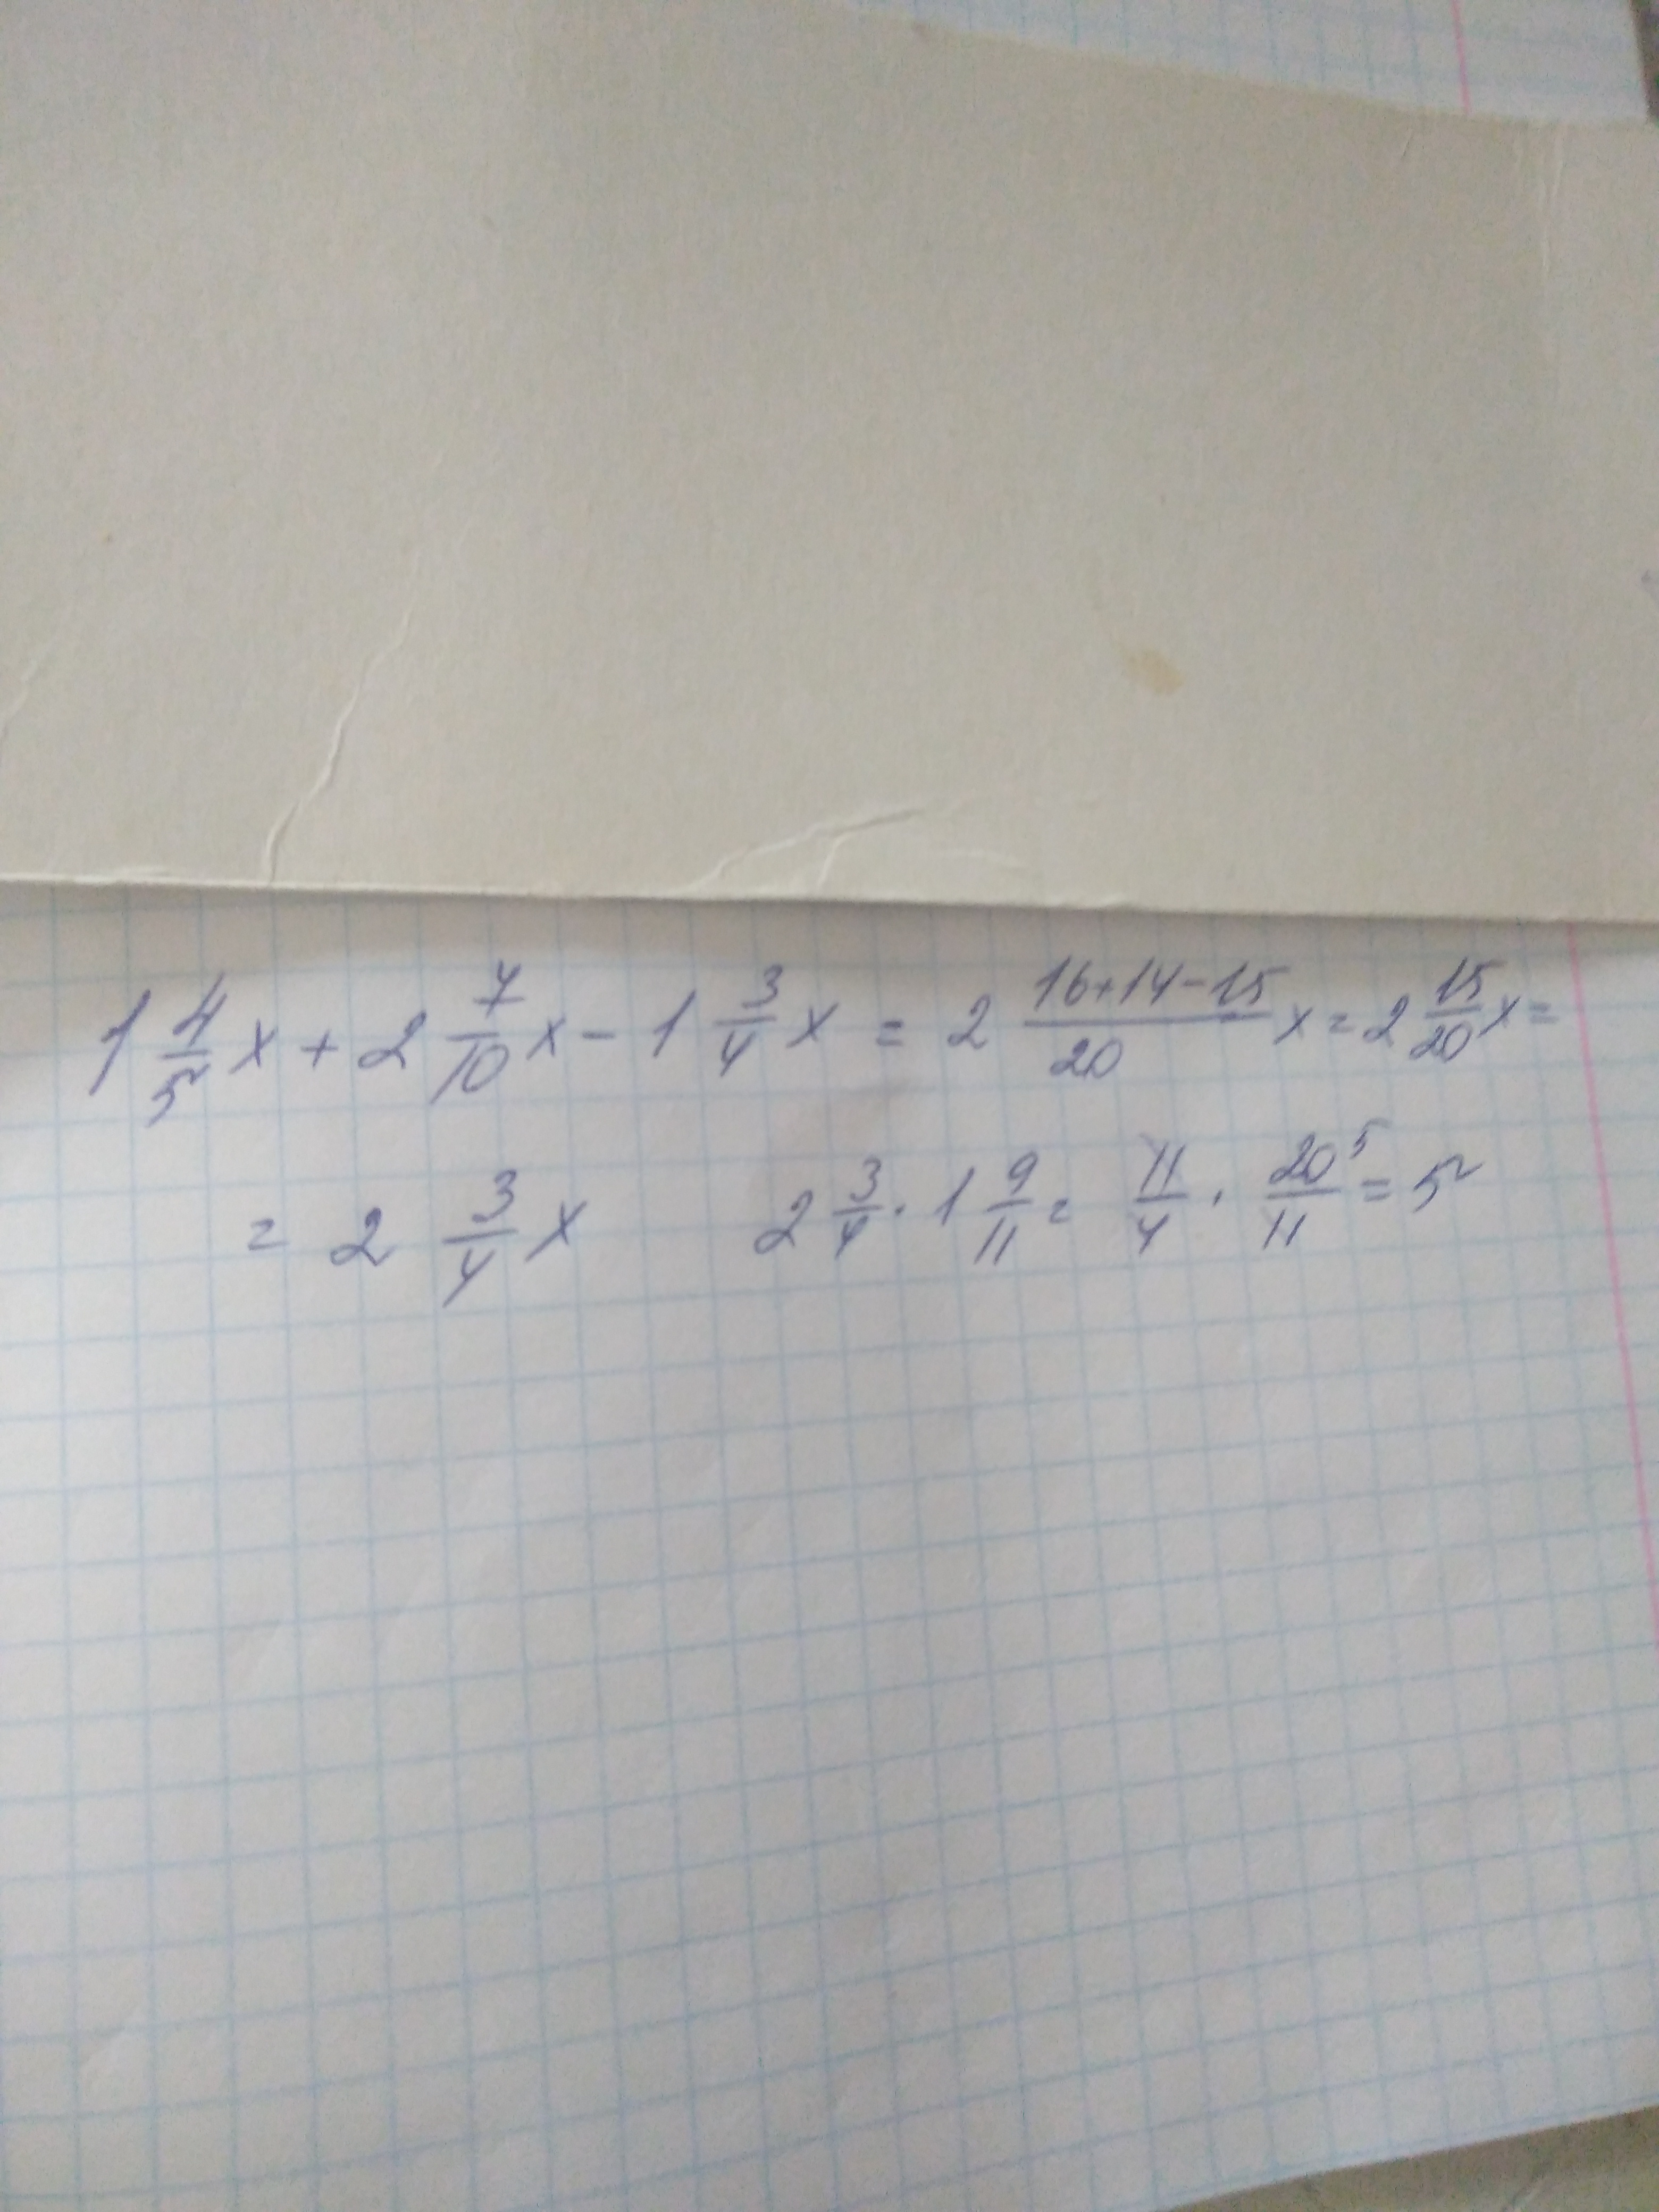 1 4/5 x + 2 7/10 x - 1 3/4 x = 2 (16+14-15)/20 x = 2 15/20 x =
= 2 3/4 x    2 3/4 · 1 9/11 = 11/4 · 20⁵/11 = 5